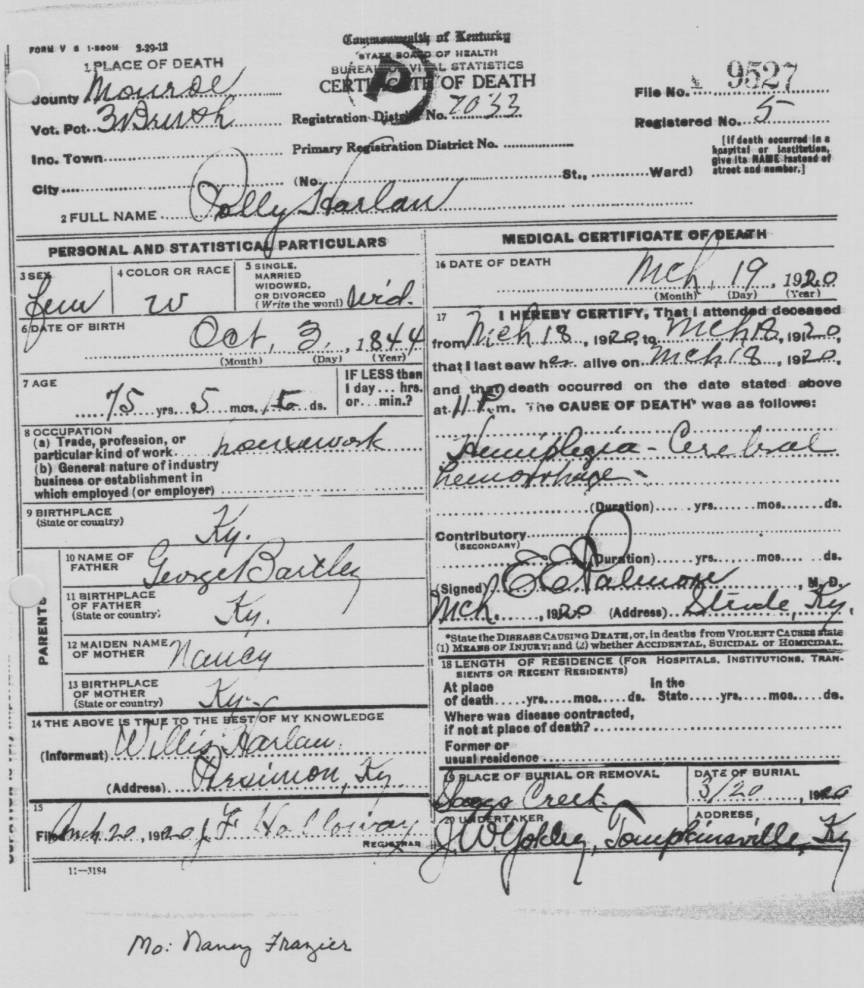 FORM V S 1-500M 3-29-12
Commonwealth of Kentucky
STATE BOARD OF HEALTH
BUREAU OF VITAL STATISTICS
CERTIFICATE OF DEATH
1 PLACE OF DEATH
County Monroe
Vot. Pct.
Inc. Town
City
Registration District No. 7033
Primary Registration District No.
(No. St., Ward)
File No. 9527
Registered No. 5
[If death occurred in a
hospital or institution,
give its NAME instead of
street and number.]
2 FULL NAME Polly Harlan
PERSONAL AND STATISTICAL PARTICULARS
3 SEX
Fem
4 COLOR OR RACE
W
5 SINGLE,
MARRIED
WIDOWED,
OR DIVORCED
(Write the word) Wid.
6 DATE OF BIRTH
Oct, 3, 1844
(Month) (Day) (Year)
7 AGE
75 yrs. 5 mos. ds.
IF LESS than
1 day... hrs.
or... min.?
8 OCCUPATION
(a) Trade, profession, or
particular kind of work housework
(b) General nature of industry
business or establishment in
which employed (or employer)
9 BIRTHPLACE
(State or country)
Ky.
PARENTS
10 NAME OF
FATHER George Bartley
11 BIRTHPLACE
OF FATHER
(State or country) Ky.
12 MAIDEN NAME
OF MOTHER Nancy
13 BIRTHPLACE
OF MOTHER
(State or country) Ky.
14 THE ABOVE IS TRUE TO THE BEST OF MY KNOWLEDGE
(Informant) Willis Harlan
(Address) Persimon, Ky.
15
Filed Mch 20, 1920 J F Holloway
REGISTRAR
11-3184
MEDICAL CERTIFICATE OF DEATH
16 DATE OF DEATH
Mch, 19, 1920
(Month) (Day) (Year)
17 I HEREBY CERTIFY, That I attended deceased
from Mch 18, 1920, to Mch 18, 1920,
that I last saw her alive on Mch 18, 1920,
and that death occurred on the date stated above
at 11 P m. The CAUSE OF DEATH* was as follows:
Hemiplegia - Cerebral
hemorrhage -
(Duration) yrs. mos. ds.
Contributory
(SECONDARY)
(Duration) yrs. mos. ds.
(Signed) E E Palmore, M. D.
Mch. 1920 (Address) Ky.
*State the DISEASE CAUSING DEATH, or, in deaths from VIOLENT CAUSES state
(1) MEANS OF INJURY; and (2) whether ACCIDENTAL, SUICIDAL or HOMICIDAL.
18 LENGTH OF RESIDENCE (FOR HOSPITALS, INSTITUTIONS, TRAN-
SIENTS OR RECENT RESIDENTS)
At place In the
of death yrs. mos. ds. State yrs. mos. ds.
Where was disease contracted,
if not at place of death?
Former or
usual residence
19 PLACE OF BURIAL OR REMOVAL
Skaggs Creek
DATE OF BURIAL
3/20, 1920
20 UNDERTAKER
J. W. Yokley,
ADDRESS
Tompkinsville, Ky
Mo: Nancy Frazier